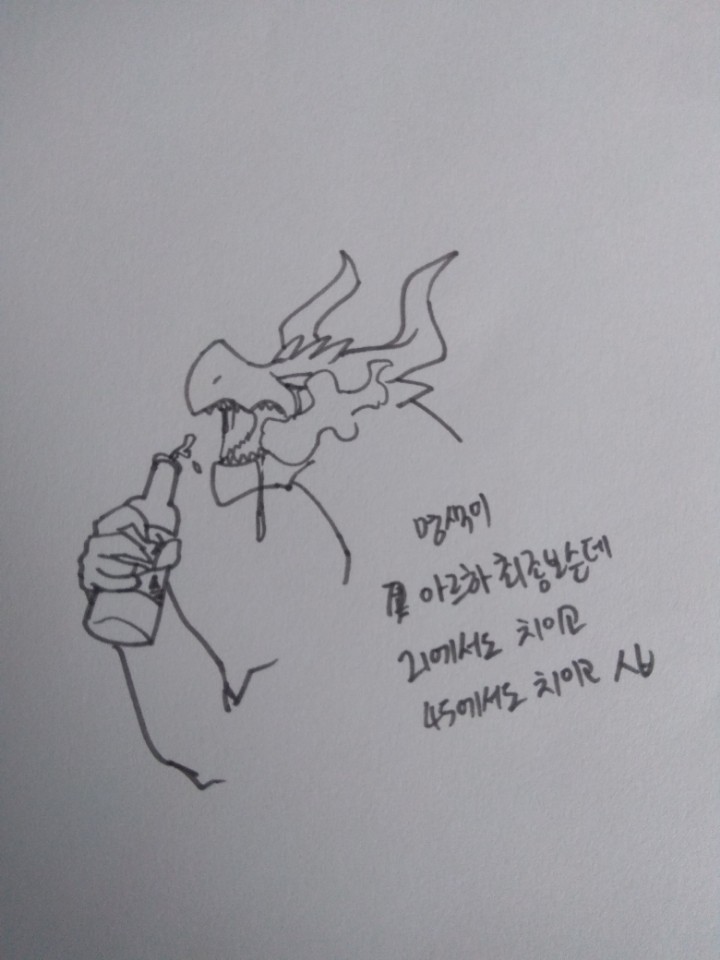 명색이
아르하 최종보스인데
21에서도 치이고
45에서도 치이고 시ㅂ